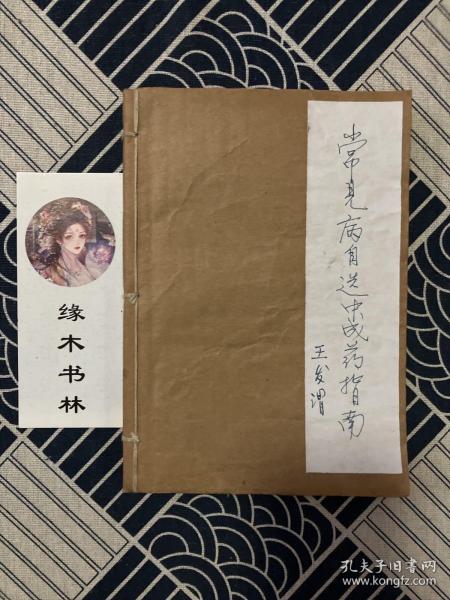 常见病自选中成药指南
王发渭
缘木书林
孔夫子旧书网
www.kongfz.com